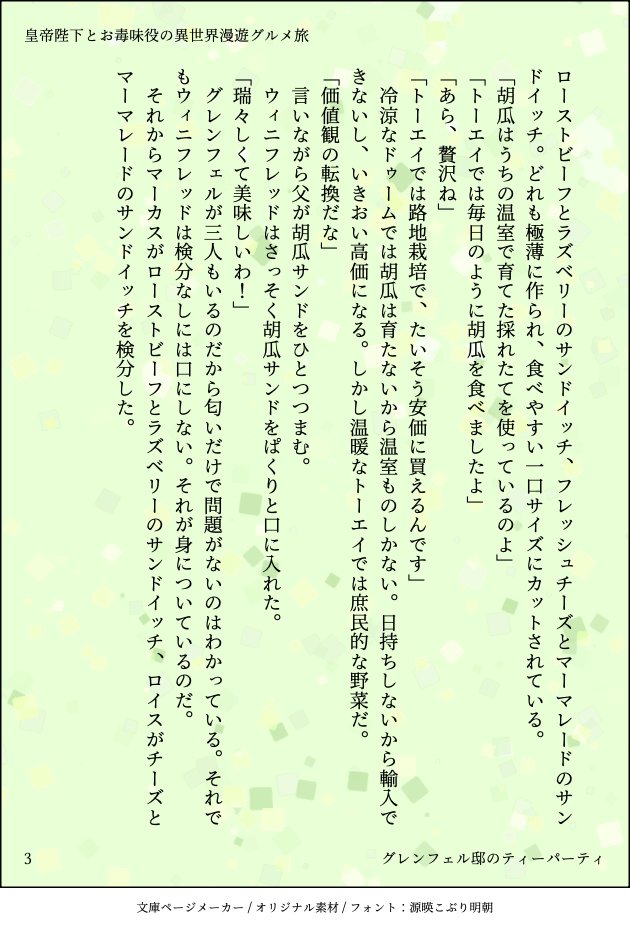 皇帝陛下とお毒味役の異世界漫遊グルメ旅
ローストビーフとラズベリーのサンドイッチ、フレッシュチーズとマーマレードのサン
ドイッチ。どれも極薄に作られ、食べやすい一口サイズにカットされている。
「胡瓜はうちの温室で育てた採れたてを使っているのよ」
「トーエイでは毎日のように胡瓜を食べましたよ」
「あら、贅沢ね」
「トーエイでは路地栽培で、たいそう安価に買えるんです」
冷涼なドゥームでは胡瓜は育たないから温室ものしかない。日持ちしないから輸入で
きないし、いきおい高価になる。しかし温暖なトーエイでは庶民的な野菜だ。
「価値観の転換だな」
言いながら父が胡瓜サンドをひとつつまむ。
ウィニフレッドはさっそく胡瓜サンドをぱくりと口に入れた。
「瑞々しくて美味しいわ！」
グレンフェルが三人もいるのだから匂いだけで問題がないのはわかっている。それで
もウィニフレッドは検分なしには口にしない。それが身についているのだ。
それからマーカスがローストビーフとラズベリーのサンドイッチ、ロイスがチーズと
マーマレードのサンドイッチを検分した。
3
グレンフェル邸のティーパーティ
文庫ページメーカー / オリジナル素材 / フォント：源暎こぶり明朝